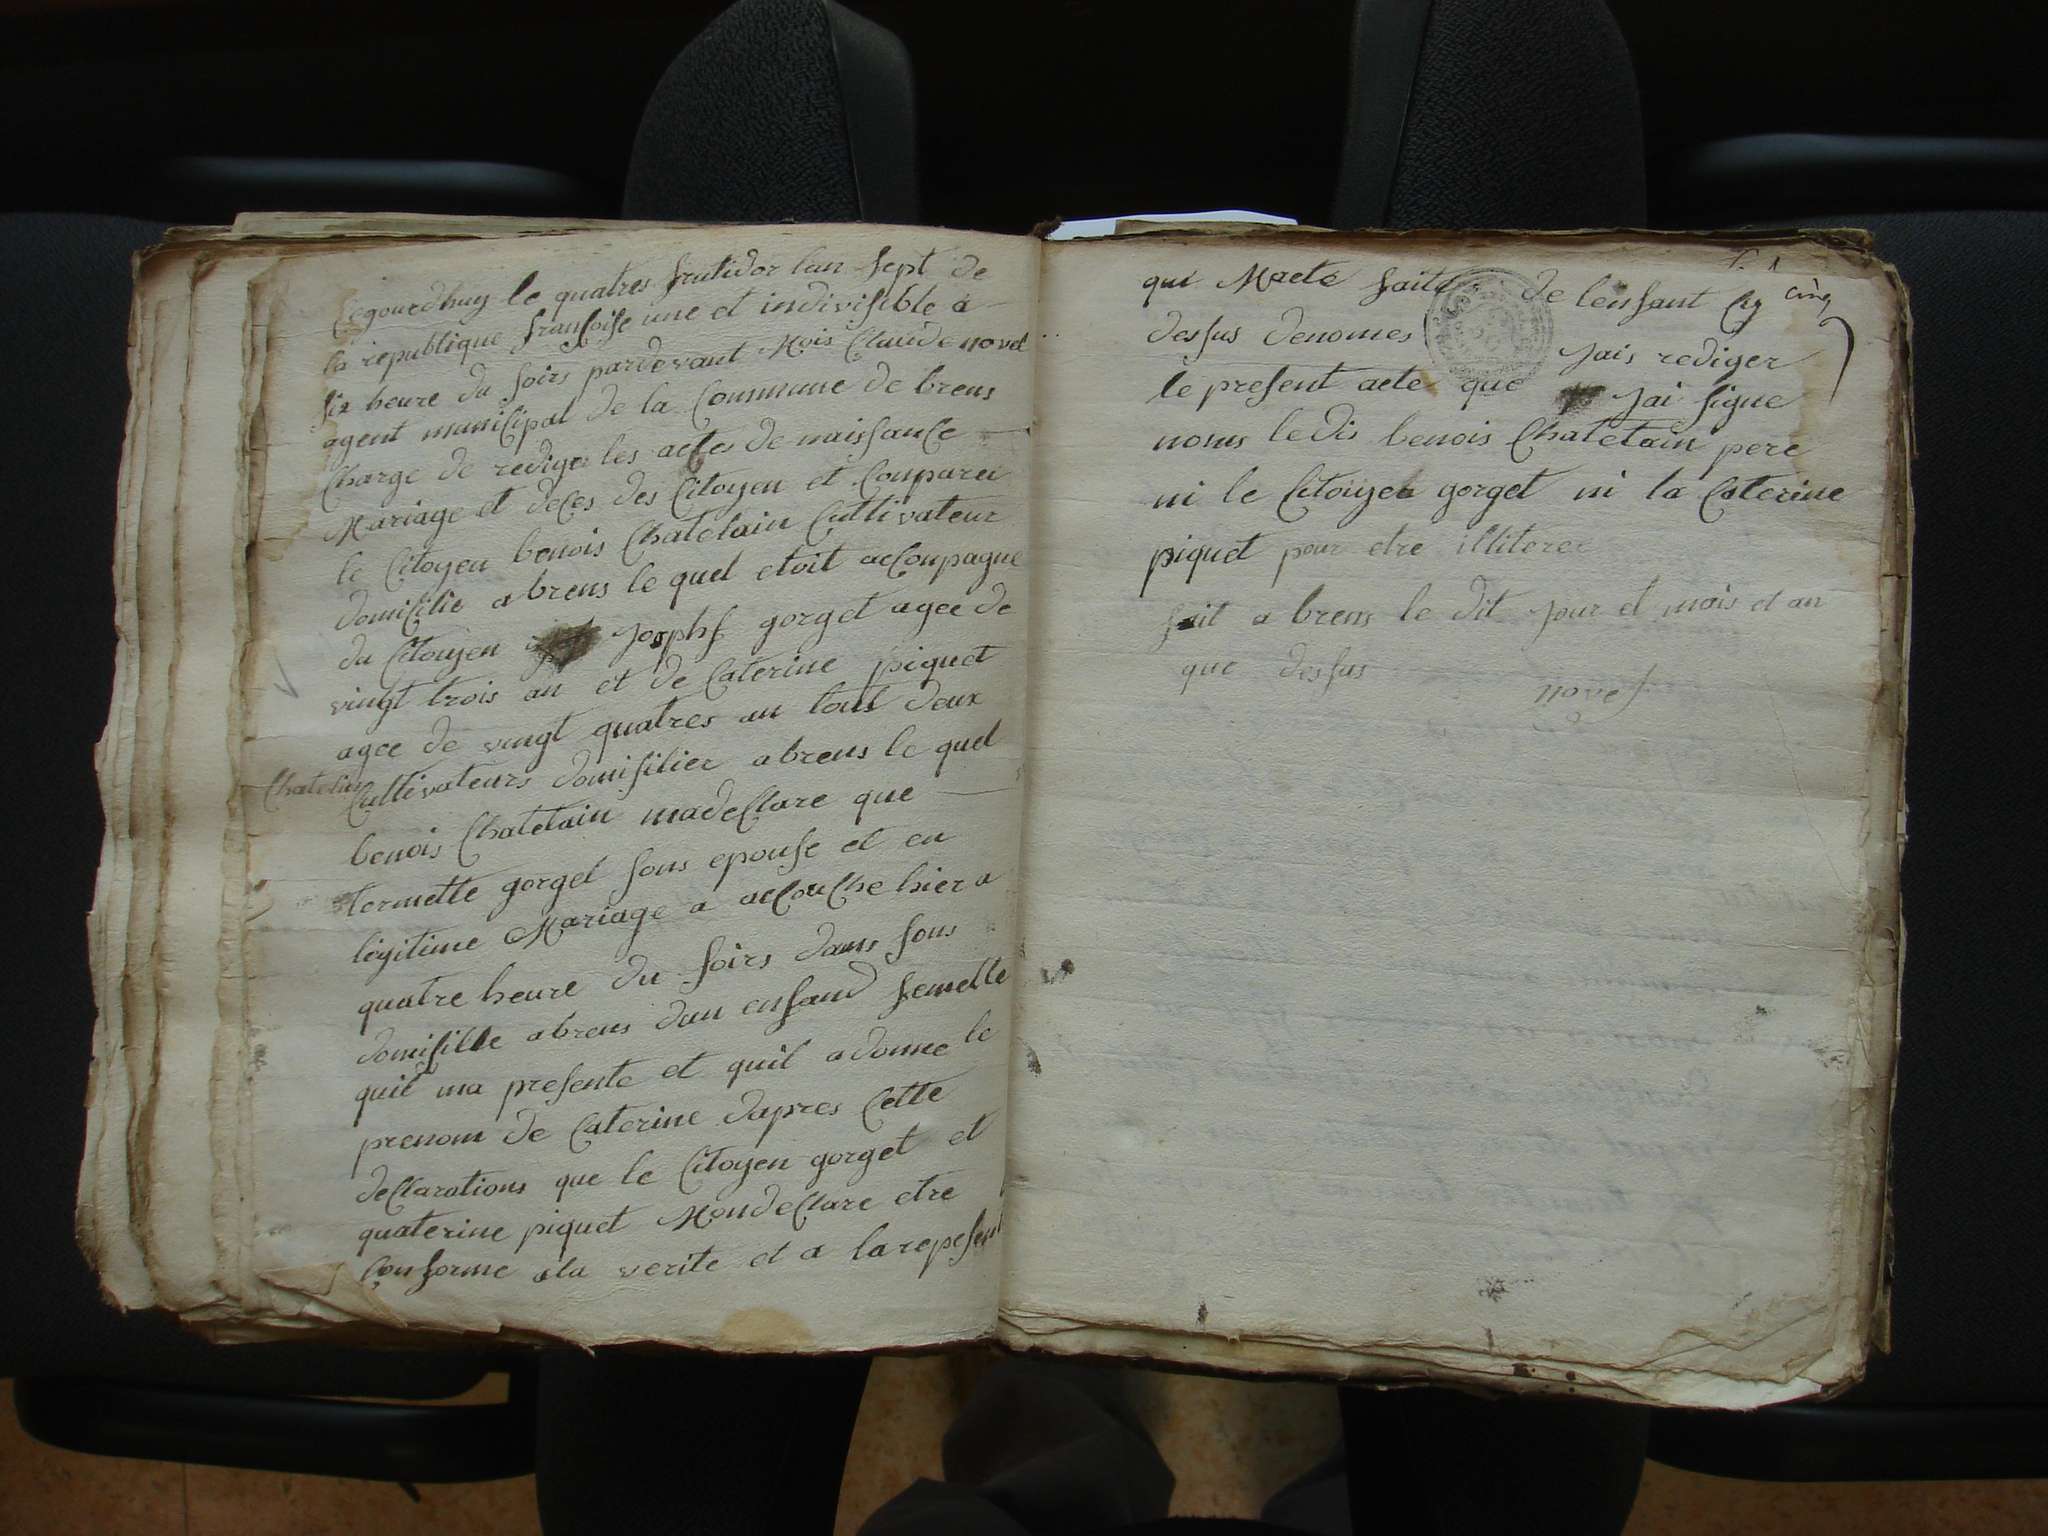 Cegourdhuy le quatres frutidor lan sept de
la republique fransoise une et indivisible a
six heure du soirs pardevant Mois Claude novel
agent municipal de la Commune de brens
Charge de rediger les actes de naissance
Mariage et deces des Citoyen et Comparu
le Citoyen benois Chatelain Cultivateur
domisilie a brens le quel etoit acCompagne
du Citoyen Josphs gorget agee de
vingt trois an et de Caterine piquet
agee de vingt quatres an tous deux
Chatelin
Cultivateurs domisilier a brens le quel
benois Chatelain madeClare que
termette gorget sons epouse et en
legitime Mariage a acCouChe hier a
quatre heure du soirs dans sons
domisille a brens dun enfand femelle
quil ma presente et quil a donne le
prenom de Caterine dapres Cette
deClarations que le Citoyen gorget et
quaterine piquet MondeClare etre
Conforme ala verite et a la represent
cinq
qui Maete faite de lenfant Cy
dessus denomes Jais rediger
le present acte que Jai signe
nons ledis benois Chatelain pere
ni le Citoyen gorget ni la Caterine
piquet pour etre illiteree
fait a brens le dit Jour et mois et an
que dessus
novel